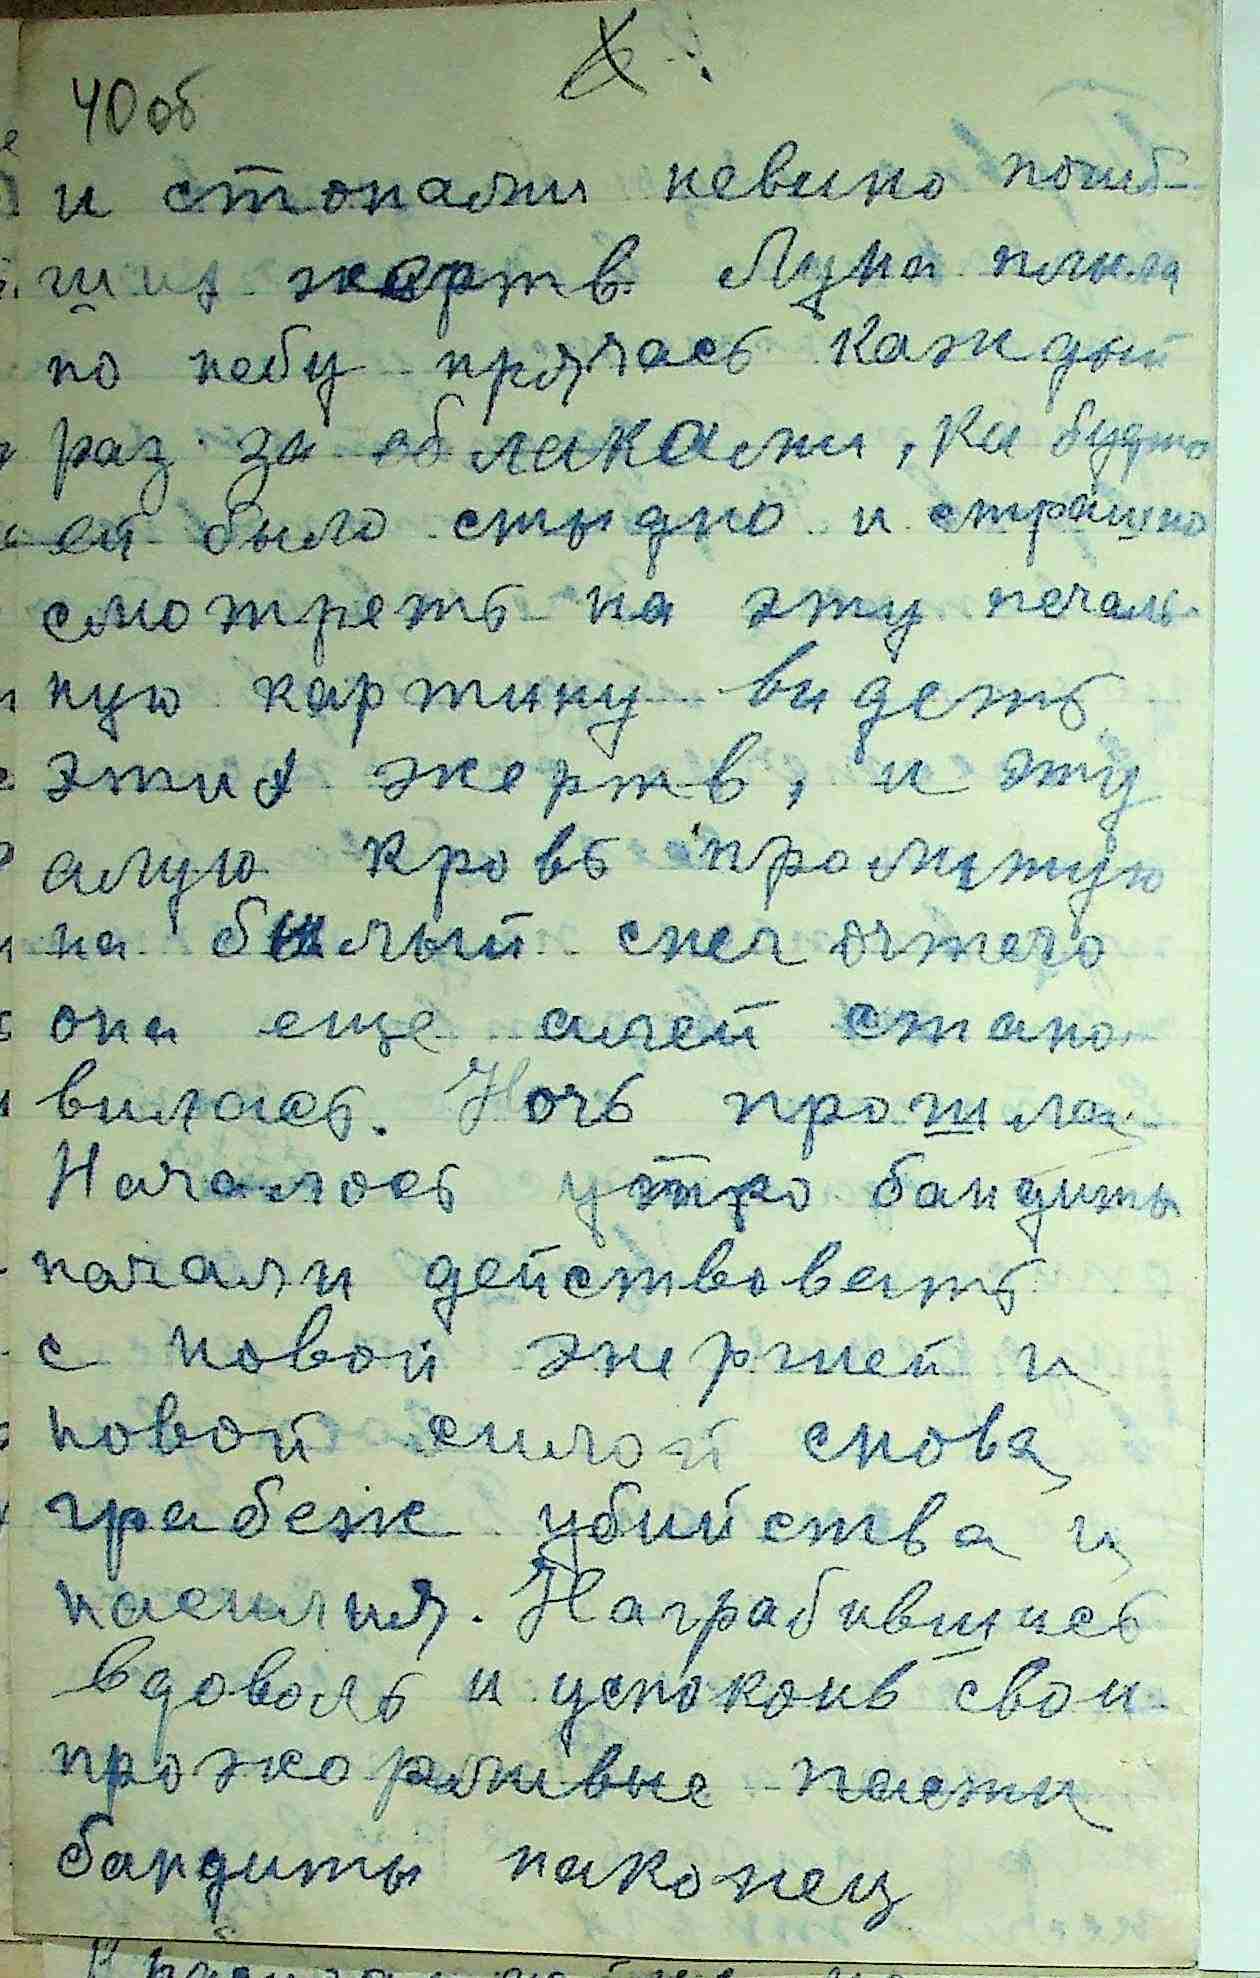 40об
и стонами невино погиб-
ших жертв. Луна плыла
по небу прячась каждый
раз за облаками, ка будто
ей было стыдно и страшно
смотреть на эту печаль-
ную картину видеть
этих жертв, и эту
алую кровь пролитую
на белый снег отчего
она еще алей стано-
вилась. Ночь прошла
Началось утро бандиты
начали действовать
с новой энергией и
новой силой снова
грабеж убийства и
насилия. Награбившись
вдоволь и успокоив свои
прожорливые пасти
бандиты наконец